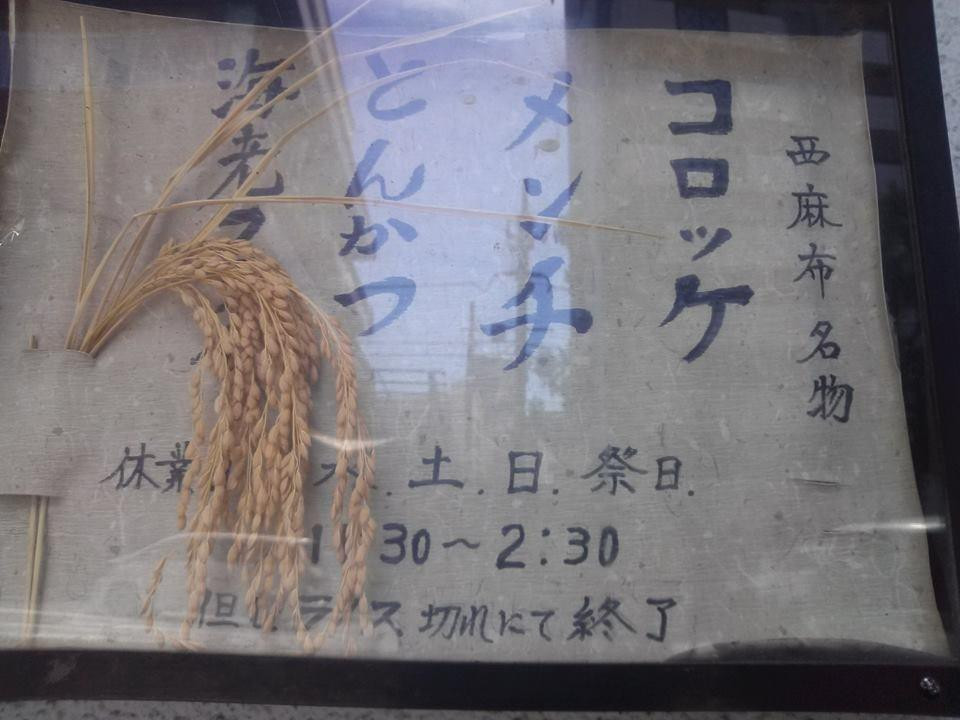 西麻布名物
コロッケ
メンチ
とんかつ
海老フ
休業 水.土.日.祭日.
1 30～2:30
但しライス切れにて終了